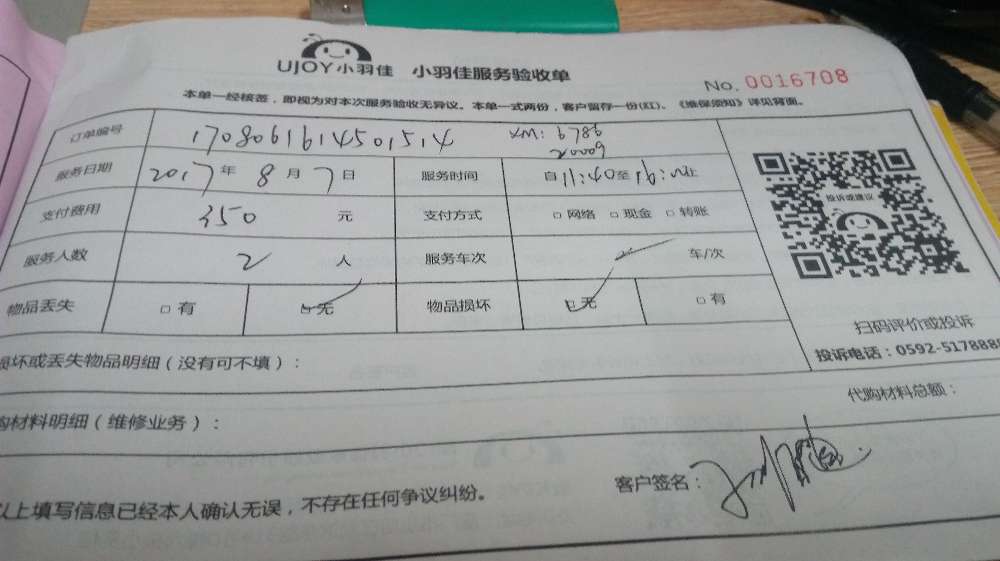 UJOY小羽佳 小羽佳服务验收单
No. 0016708
本单一经核签，即视为对本次服务验收无异议。本单一式两份，客户留存一份(红)、《维保须知》详见背面。
订单编号 1708091914501514
服务日期 2017年8月7日 服务时间 自11:40至 止
支付费用 350 元 支付方式 □网络 □现金 □转账
服务人数 2 人 服务车次 车/次
物品丢失 □有 □无 物品损坏 □无 □有
投诉或建议
扫码评价或投诉
投诉电话：0592-5178888
损坏或丢失物品明细（没有可不填）：
代购材料总额：
购材料明细（维修业务）：
客户签名：
以上填写信息已经本人确认无误，不存在任何争议纠纷。